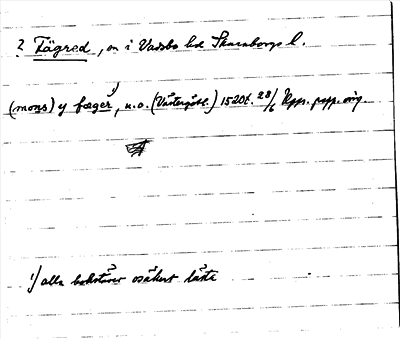 ? Fägred, sn i Vadsbo hd Skaraborgs l.
(mons) y fæger 1), u.o. (Västergötl.) 1520t. 28/6 Upps. papp. orig.
1) alla bokstäver osäkert lästa